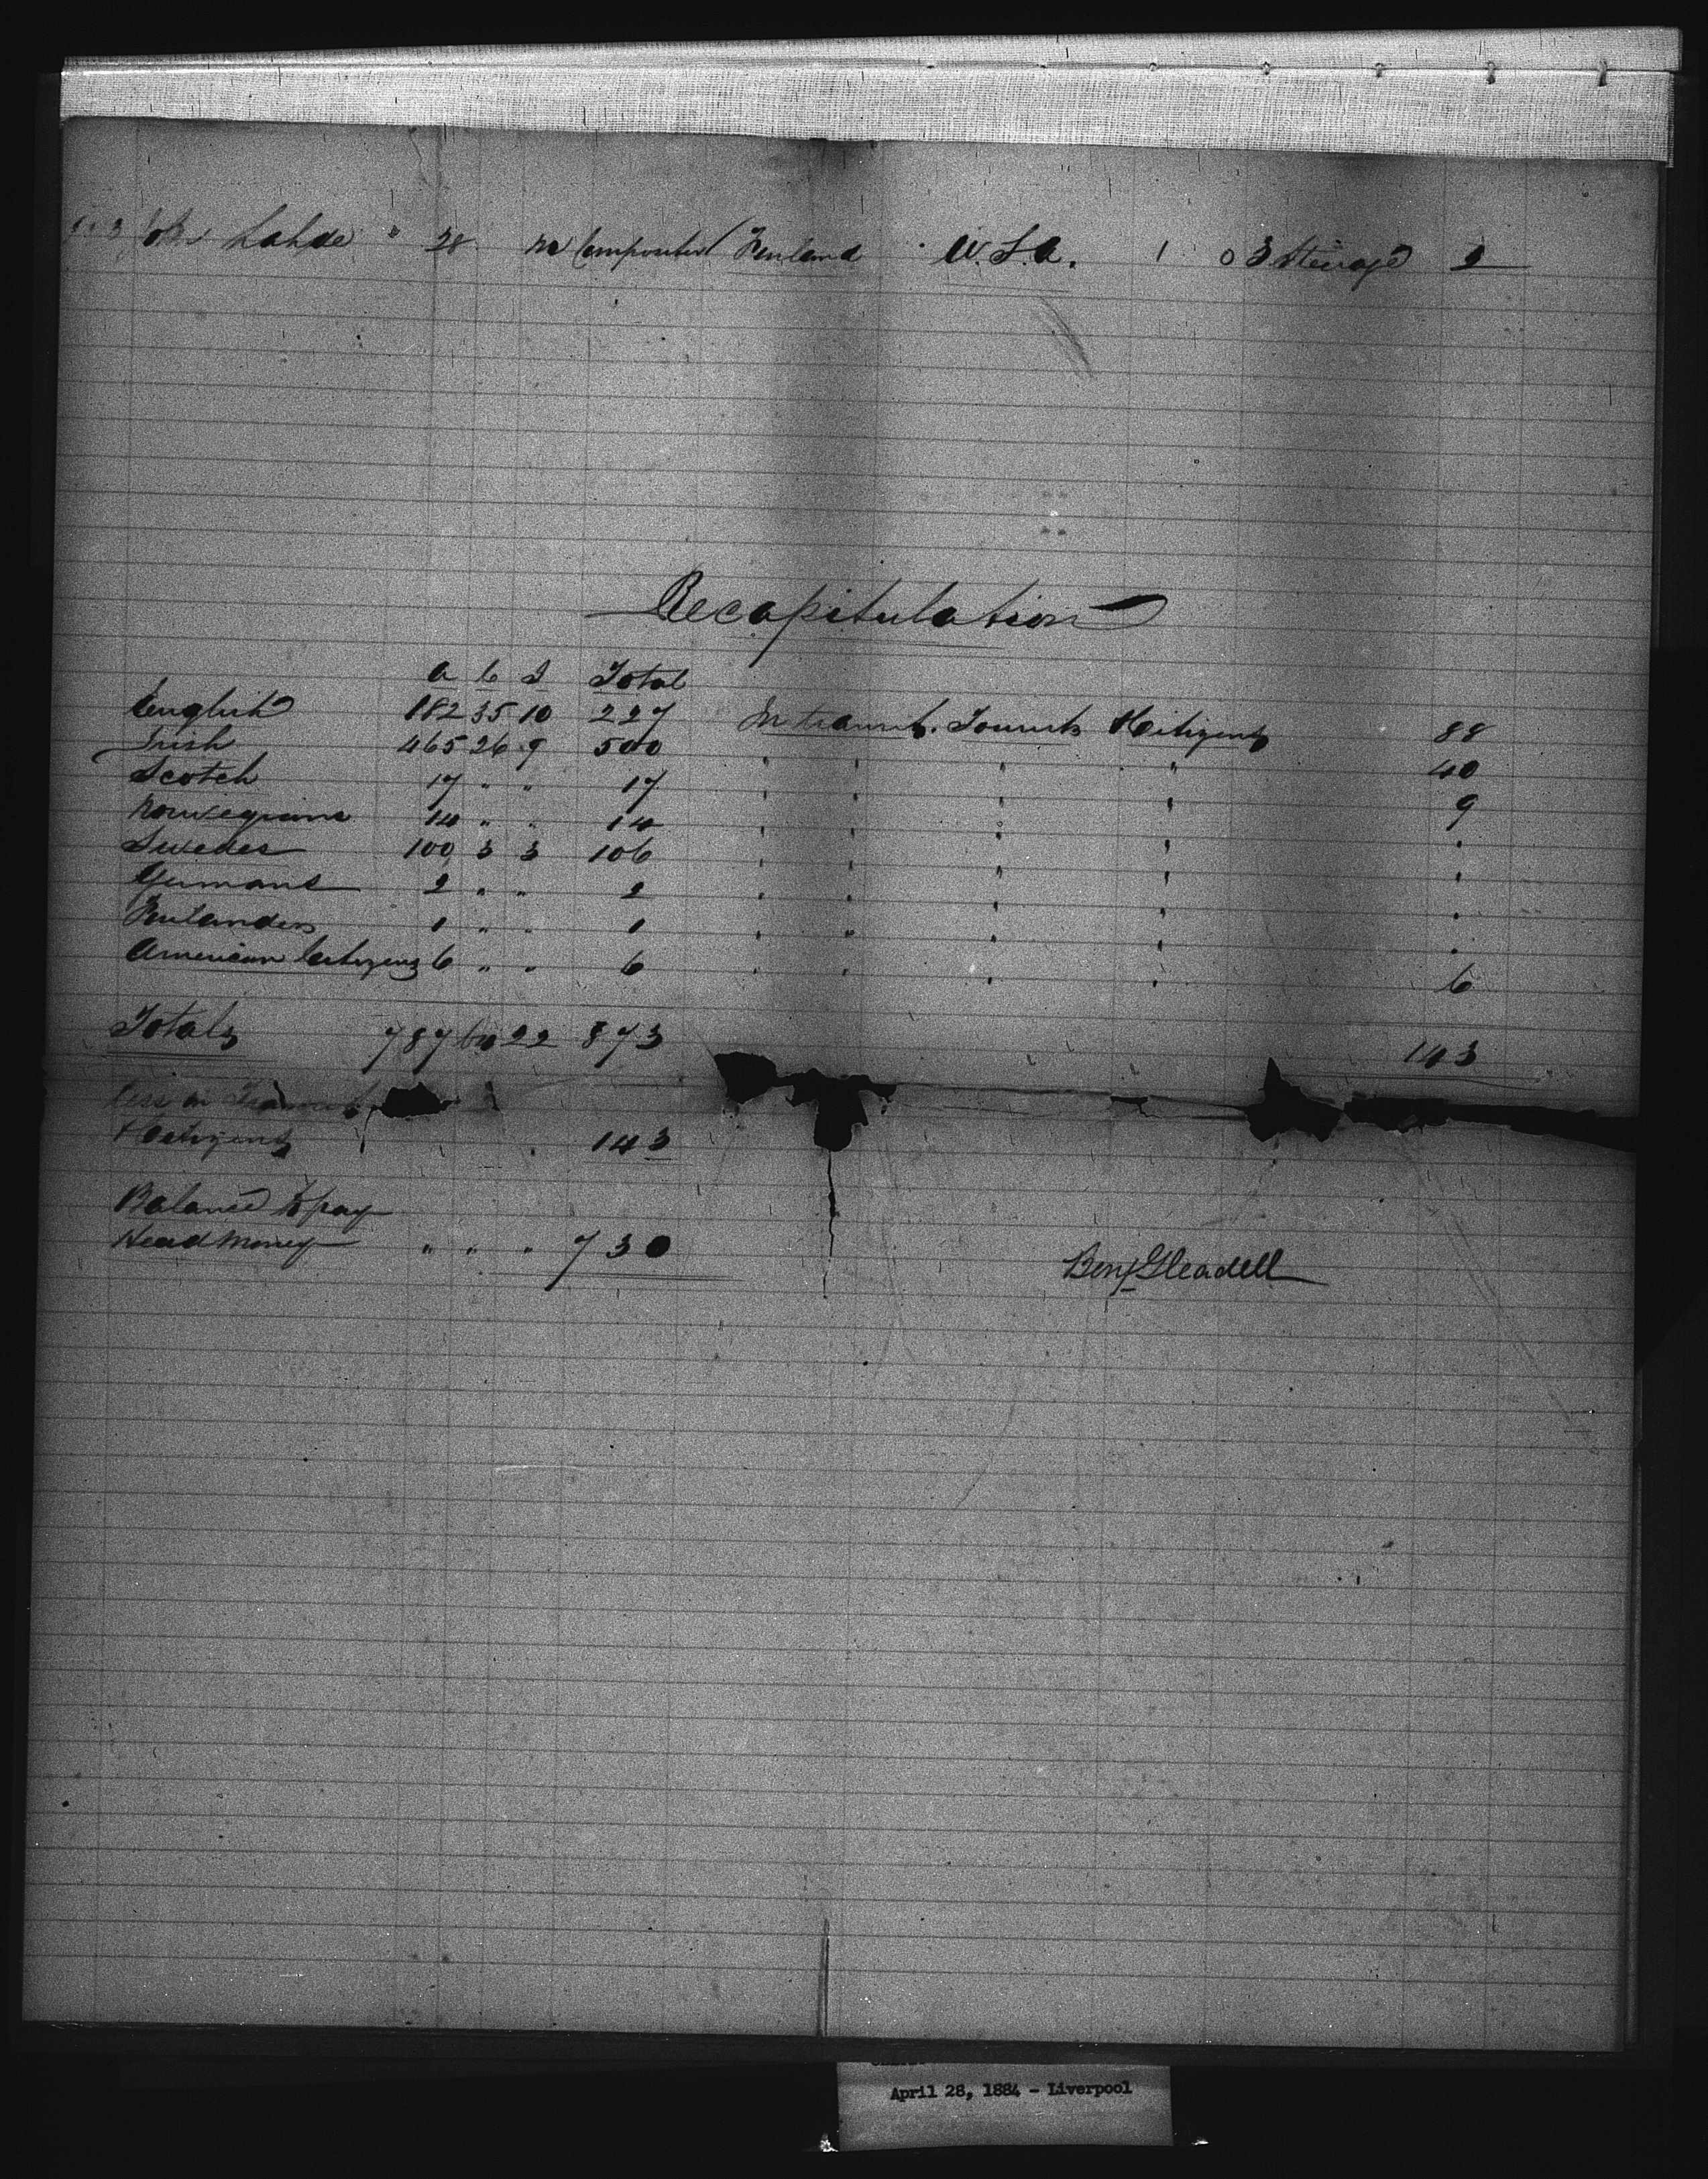 Lahde " 28 m Compositor Finland U.S.A. 1 0 3 Steerage 2
Recapitulation
A C I Total
English 182 35 10 227 In transit. Tourists & Citizens 88
Irish 465 26 9 500 " " " " 40
Scotch 17 " " 17 " " " " 9
Norwegians 14 " " 14 " " " " "
Swedes 100 3 3 106 " " " " "
Germans 2 " " 2 " " " " "
Finlanders 1 " " 1 " " " " "
American Citizens 6 " " 6 " " " " 6
Totals 787 64 22 873 143
Less in Transit
& Citizens 143
Balance to pay
Head Money " " " 730
Benj Gleadell
April 28, 1884 - Liverpool